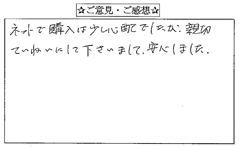 ☆ご意見・ご感想☆
ネットで購入は少し心配でしたが、親切
ていねいにして下さいまして、安心しました。